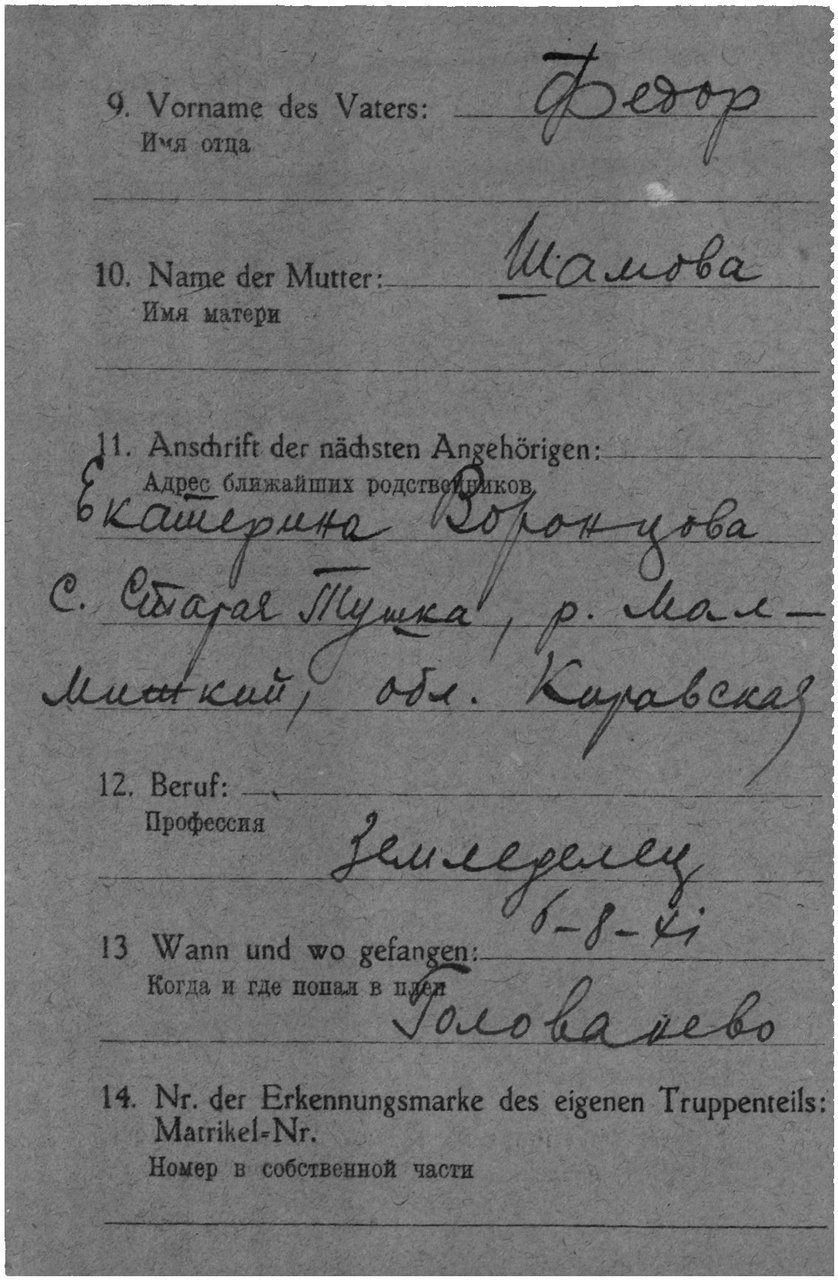 9. Vorname des Vaters: Федор
Имя отца
10. Name der Mutter: Шамова
Имя матери
11. Anschrift der nächsten Angehörigen:
Адрес ближайших родственников
Екатерина Воронцова
с. Старая Тушка, р. Мал–
мишкий, обл. Кировская
12. Beruf:
Профессия
Земледелец
6–8–41
13 Wann und wo gefangen:
Когда и где попал в плен
Голованево
14. Nr. der Erkennungsmarke des eigenen Truppenteils:
Matrikel-Nr.
Номер в собственной части